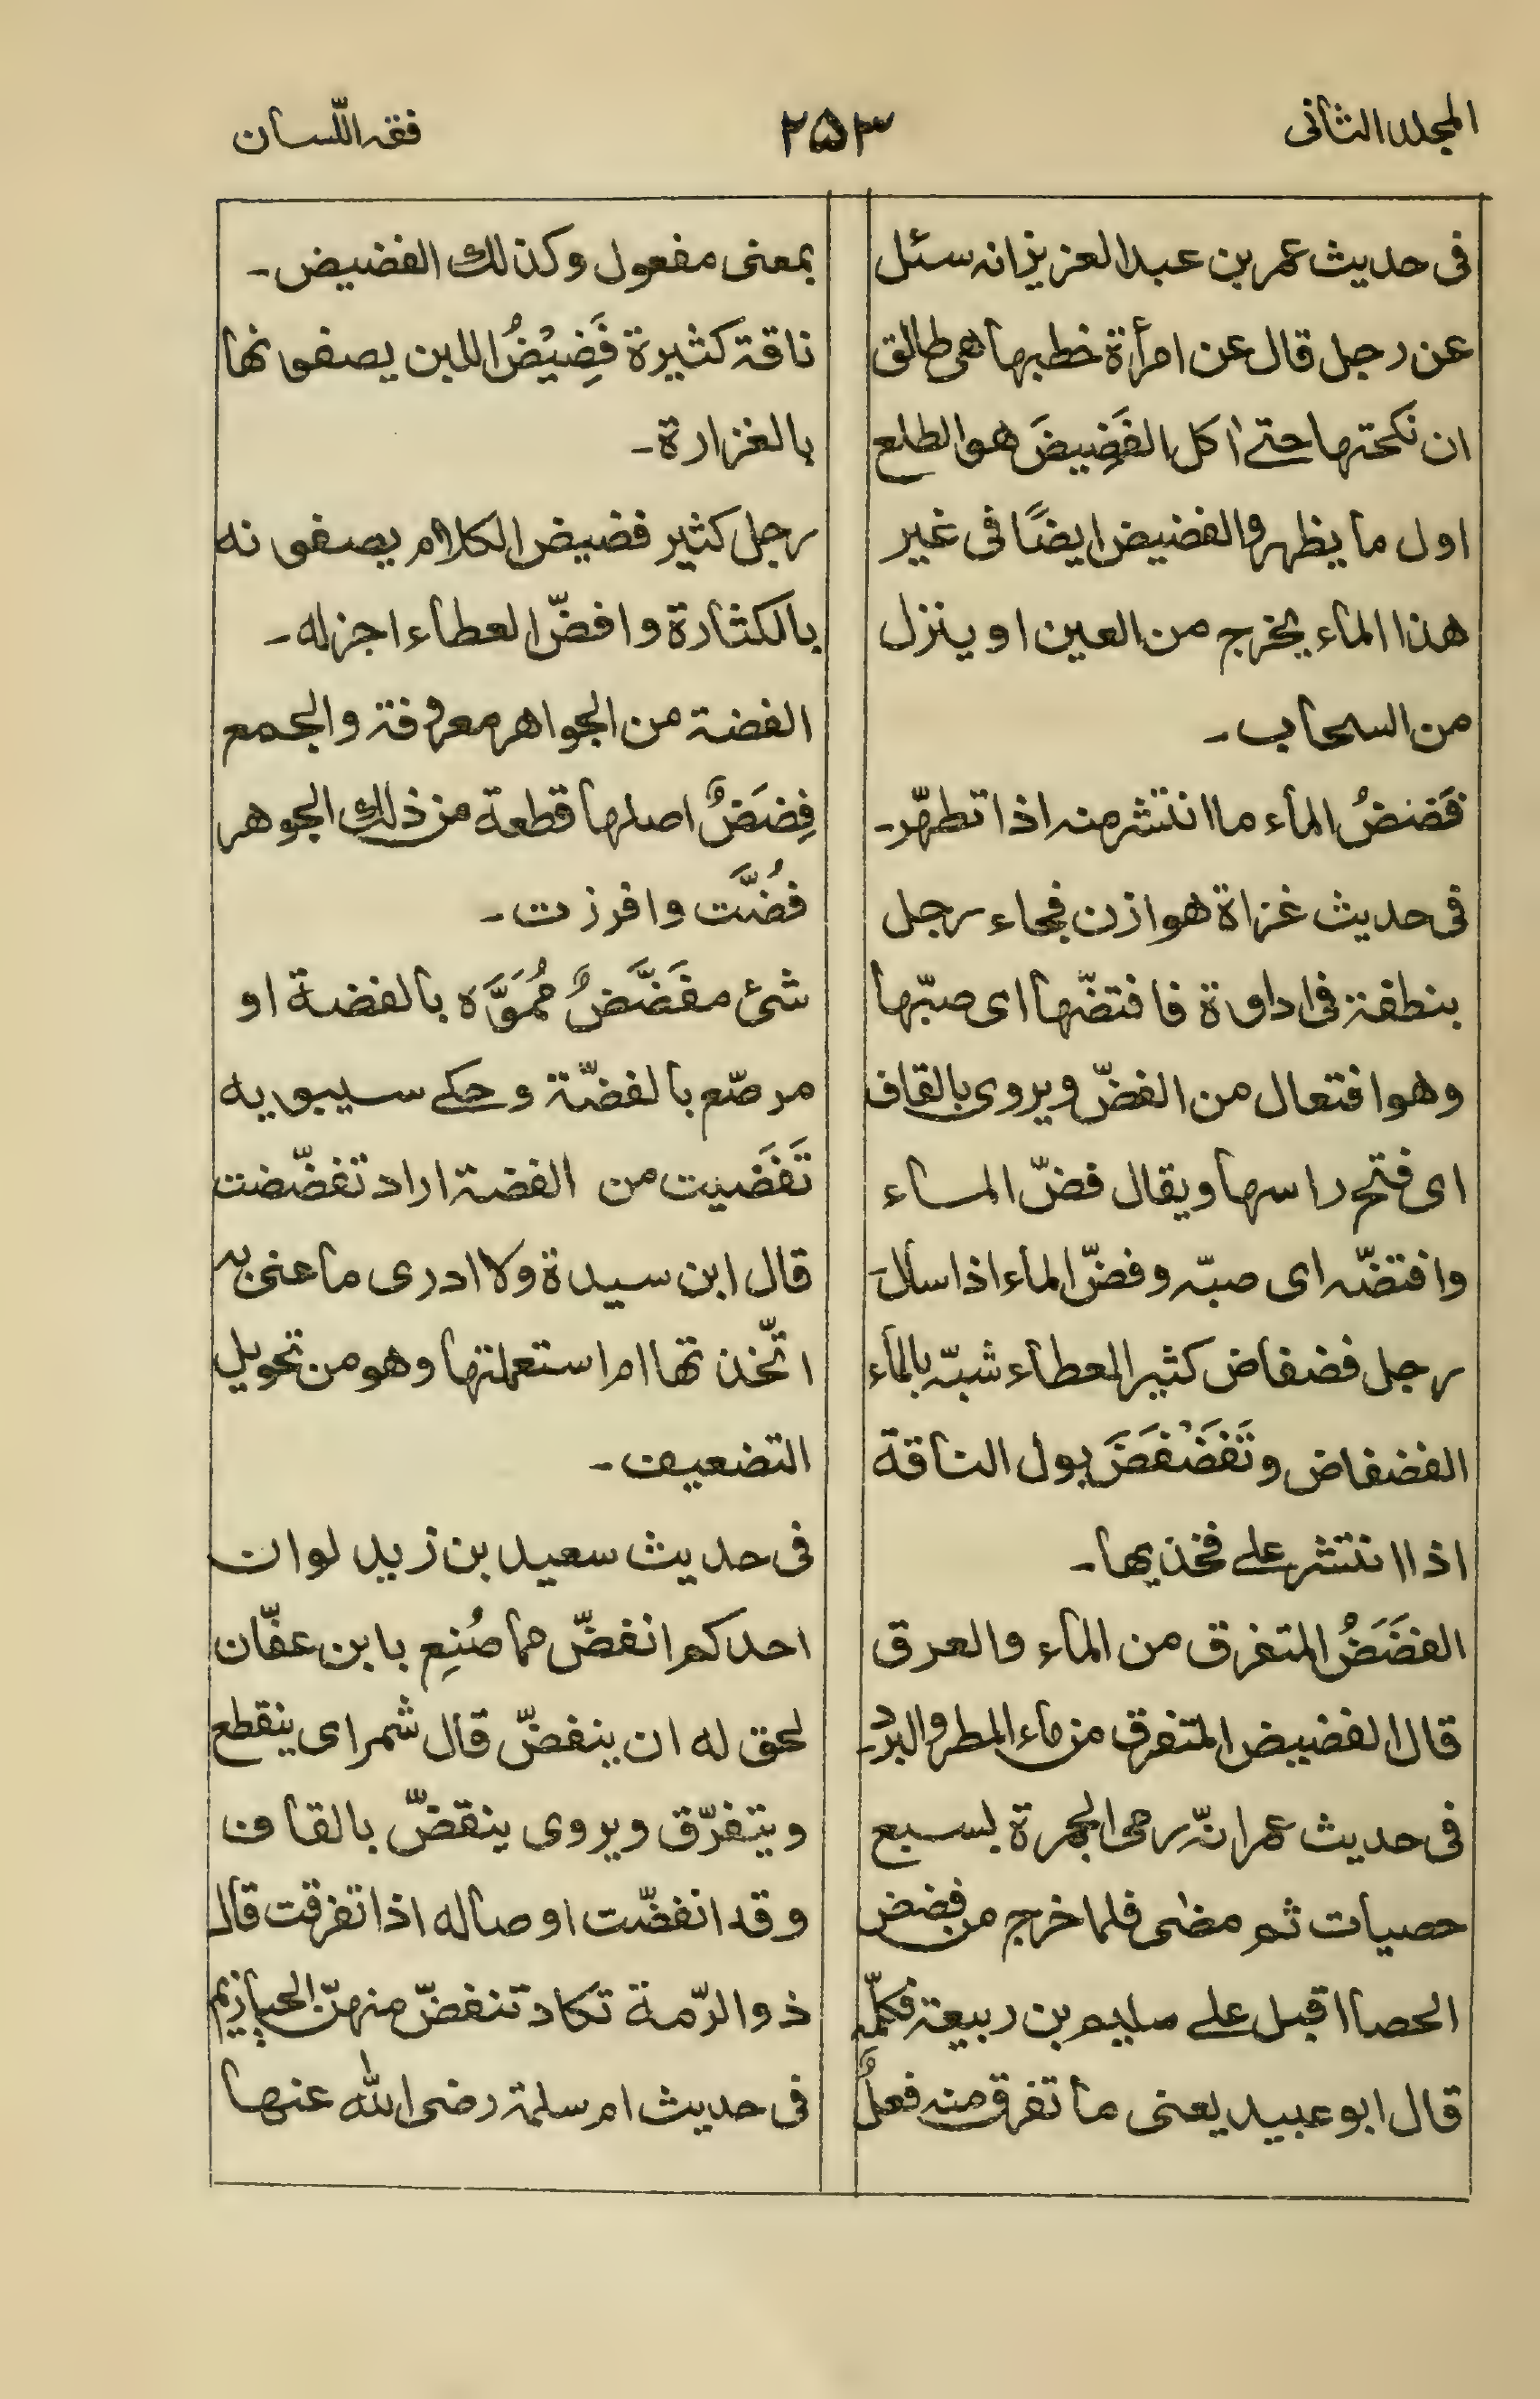 المجلد الثانی
۲۵۳
فقہ اللّسان
فی حدیث عمر بن عبد العزیز انہ سئل
عن رجل قال عن امرأة خطبہا ھی طالق
ان نکحتہا حتے اٰکل الفَضِیضَ ھو الطلع
اول ما یظہر والفضیض ایضًا فی غیر
ھذا الماء یخرج من العین او ینزل
من السحاب۔
فَضَضُ الماء ما انتشر منہ اذا تطھّر۔
فی حدیث غزاة ھوازن فجاء رجل
بنطفة فی اداوة فافتضّھا ای صبّھا
وھو افتعال من الفضّ ویروی بالقاف
ای فتح راسہا ویقال فضّ الماء
وافتضّہ ای صبّہ وفضّ الماء اذا سال۔
رجل فضفاض کثیر العطاء شبّہ بالماء
الفضفاض وتَفَضْفَضَ بول الناقة
اذا انتشر علے فخذیھا۔
الفَضَضُ المتفرق من الماء والعرق
قال الفضیض المتفرق من ماء المطر والبرد۔
فی حدیث عمر انّہ رمی الجمرة بسبع
حصیات ثم مضٰی فلما خرج من فضض
الحصا اقبل علے سلیم بن ربیعة فکلّمہ
قال ابو عبید یعنی ما تفرق منہ فعلٌ
بمعنی مفعول وکذلك الفضیض۔
ناقة کثیرة فَضِیْضُ اللبن یصفونھا
بالغزارة۔
رجل کثیر فضیض الکلام یصفونه
بالکثارة وافضّ العطاء اجزله۔
الفضة من الجواھر معروفة والجمع
فِضَضٌ اصلہا قطعة من ذلك الجوھر
فُضَّت وافرزت۔
شئ مفَضَّضٌ مُمَوَّہ بالفضة او
مرصّع بالفضّة وحکے سیبویه
تَفَضَیت من الفضة اراد تفضّضت
قال ابن سیدة ولا ادری ما عنی بہ
اتّخذتھا ام استعملتھا وھو من تحویل
التضعیف۔
فی حدیث سعید بن زید لو ان
احدکم انفضّ مما صُنِع بابن عفّان
لحق له ان ینفضّ قال شمر ای ینقطع
ویتفرّق ویروی ینقضّ بالقاف
وقد انفضّت اوصاله اذا تفرقت قال
ذو الرّمة تکاد تنفضّ منھنّ الحیازیم
فی حدیث ام سلمة رضی اللّٰہ عنھا